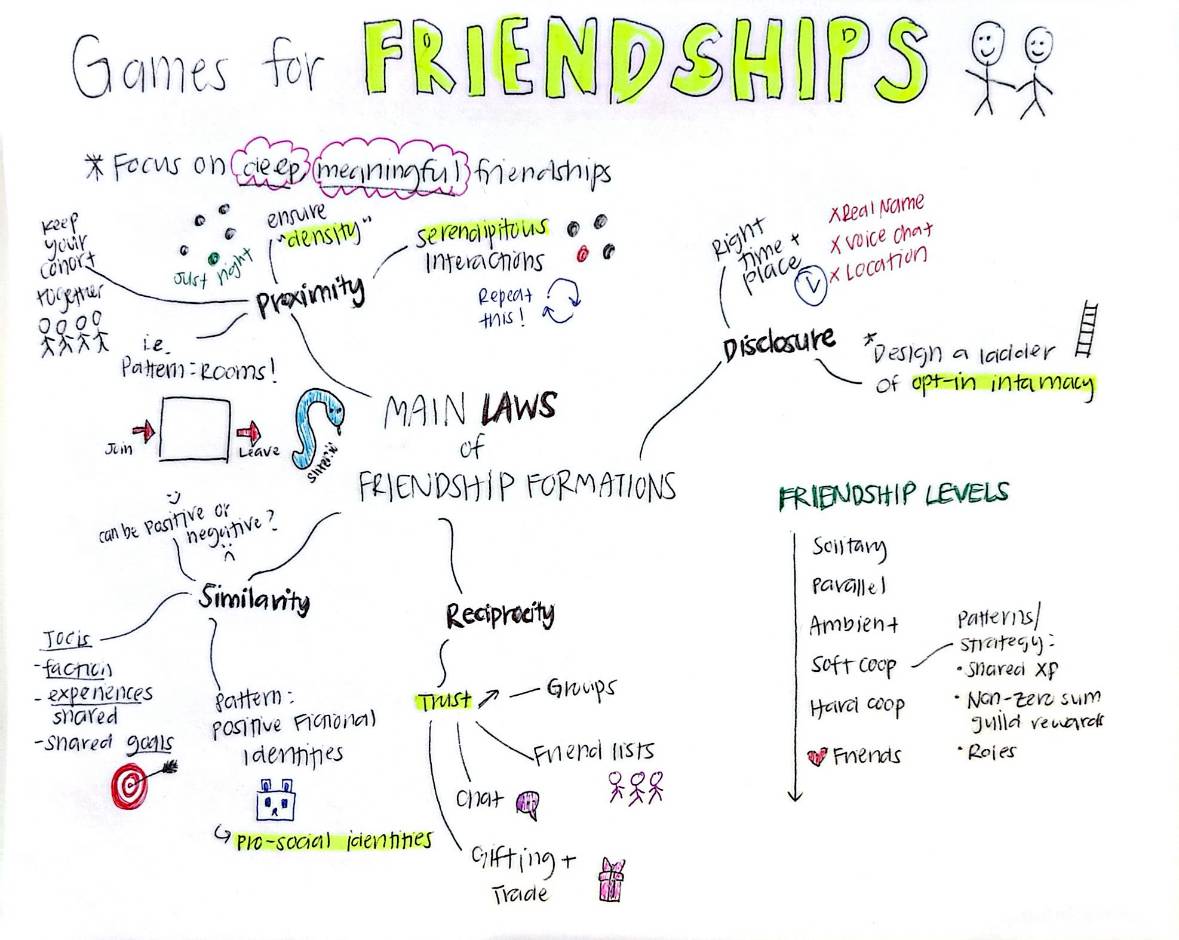 Games for FRIENDSHIPS
* Focus on deep, meaningful friendships
Keep
your
cohort
together
Just right
ensure
"density"
serendipitous
Interactions
Repeat
this!
Proximity
i.e.
Pattern = Rooms!
Join
Leave
MAIN LAWS
of
FRIENDSHIP FORMATIONS
Right
time +
place
x Real Name
x voice chat
x Location
Disclosure
* Design a ladder
of opt-in intamacy
can be positive or
negative?
Similarity
- faction
- experiences
shared
- shared goals
pattern:
positive Fictional
identities
pro-social identities
Reciprocity
Trust
Groups
Friend lists
Chat
Gifting +
Trade
FRIENDSHIP LEVELS
Solitary
Parallel
Ambient
Soft coop
Hard coop
Friends
patterns/
strategy:
• Shared XP
• Non-zero sum
guild rewards
• Roles